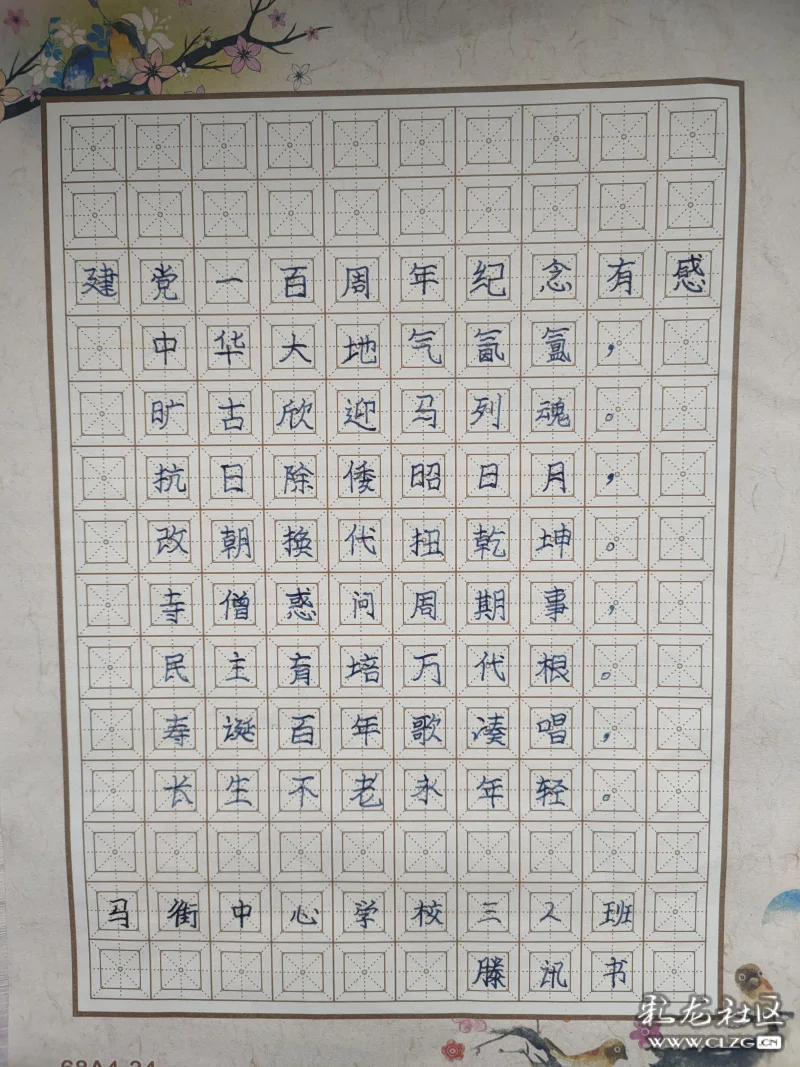 建党一百周年纪念有感
中华大地气氤氲，
旷古欣迎马列魂。
抗日除倭昭日月，
改朝换代扭乾坤。
寺僧惑问周期事，
民主育培万代根。
寿诞百年歌凑唱，
长生不老永年轻。
马街中心学校三2班
滕讯书
68A4-24
札龙社区
WWW.CLZG.CN